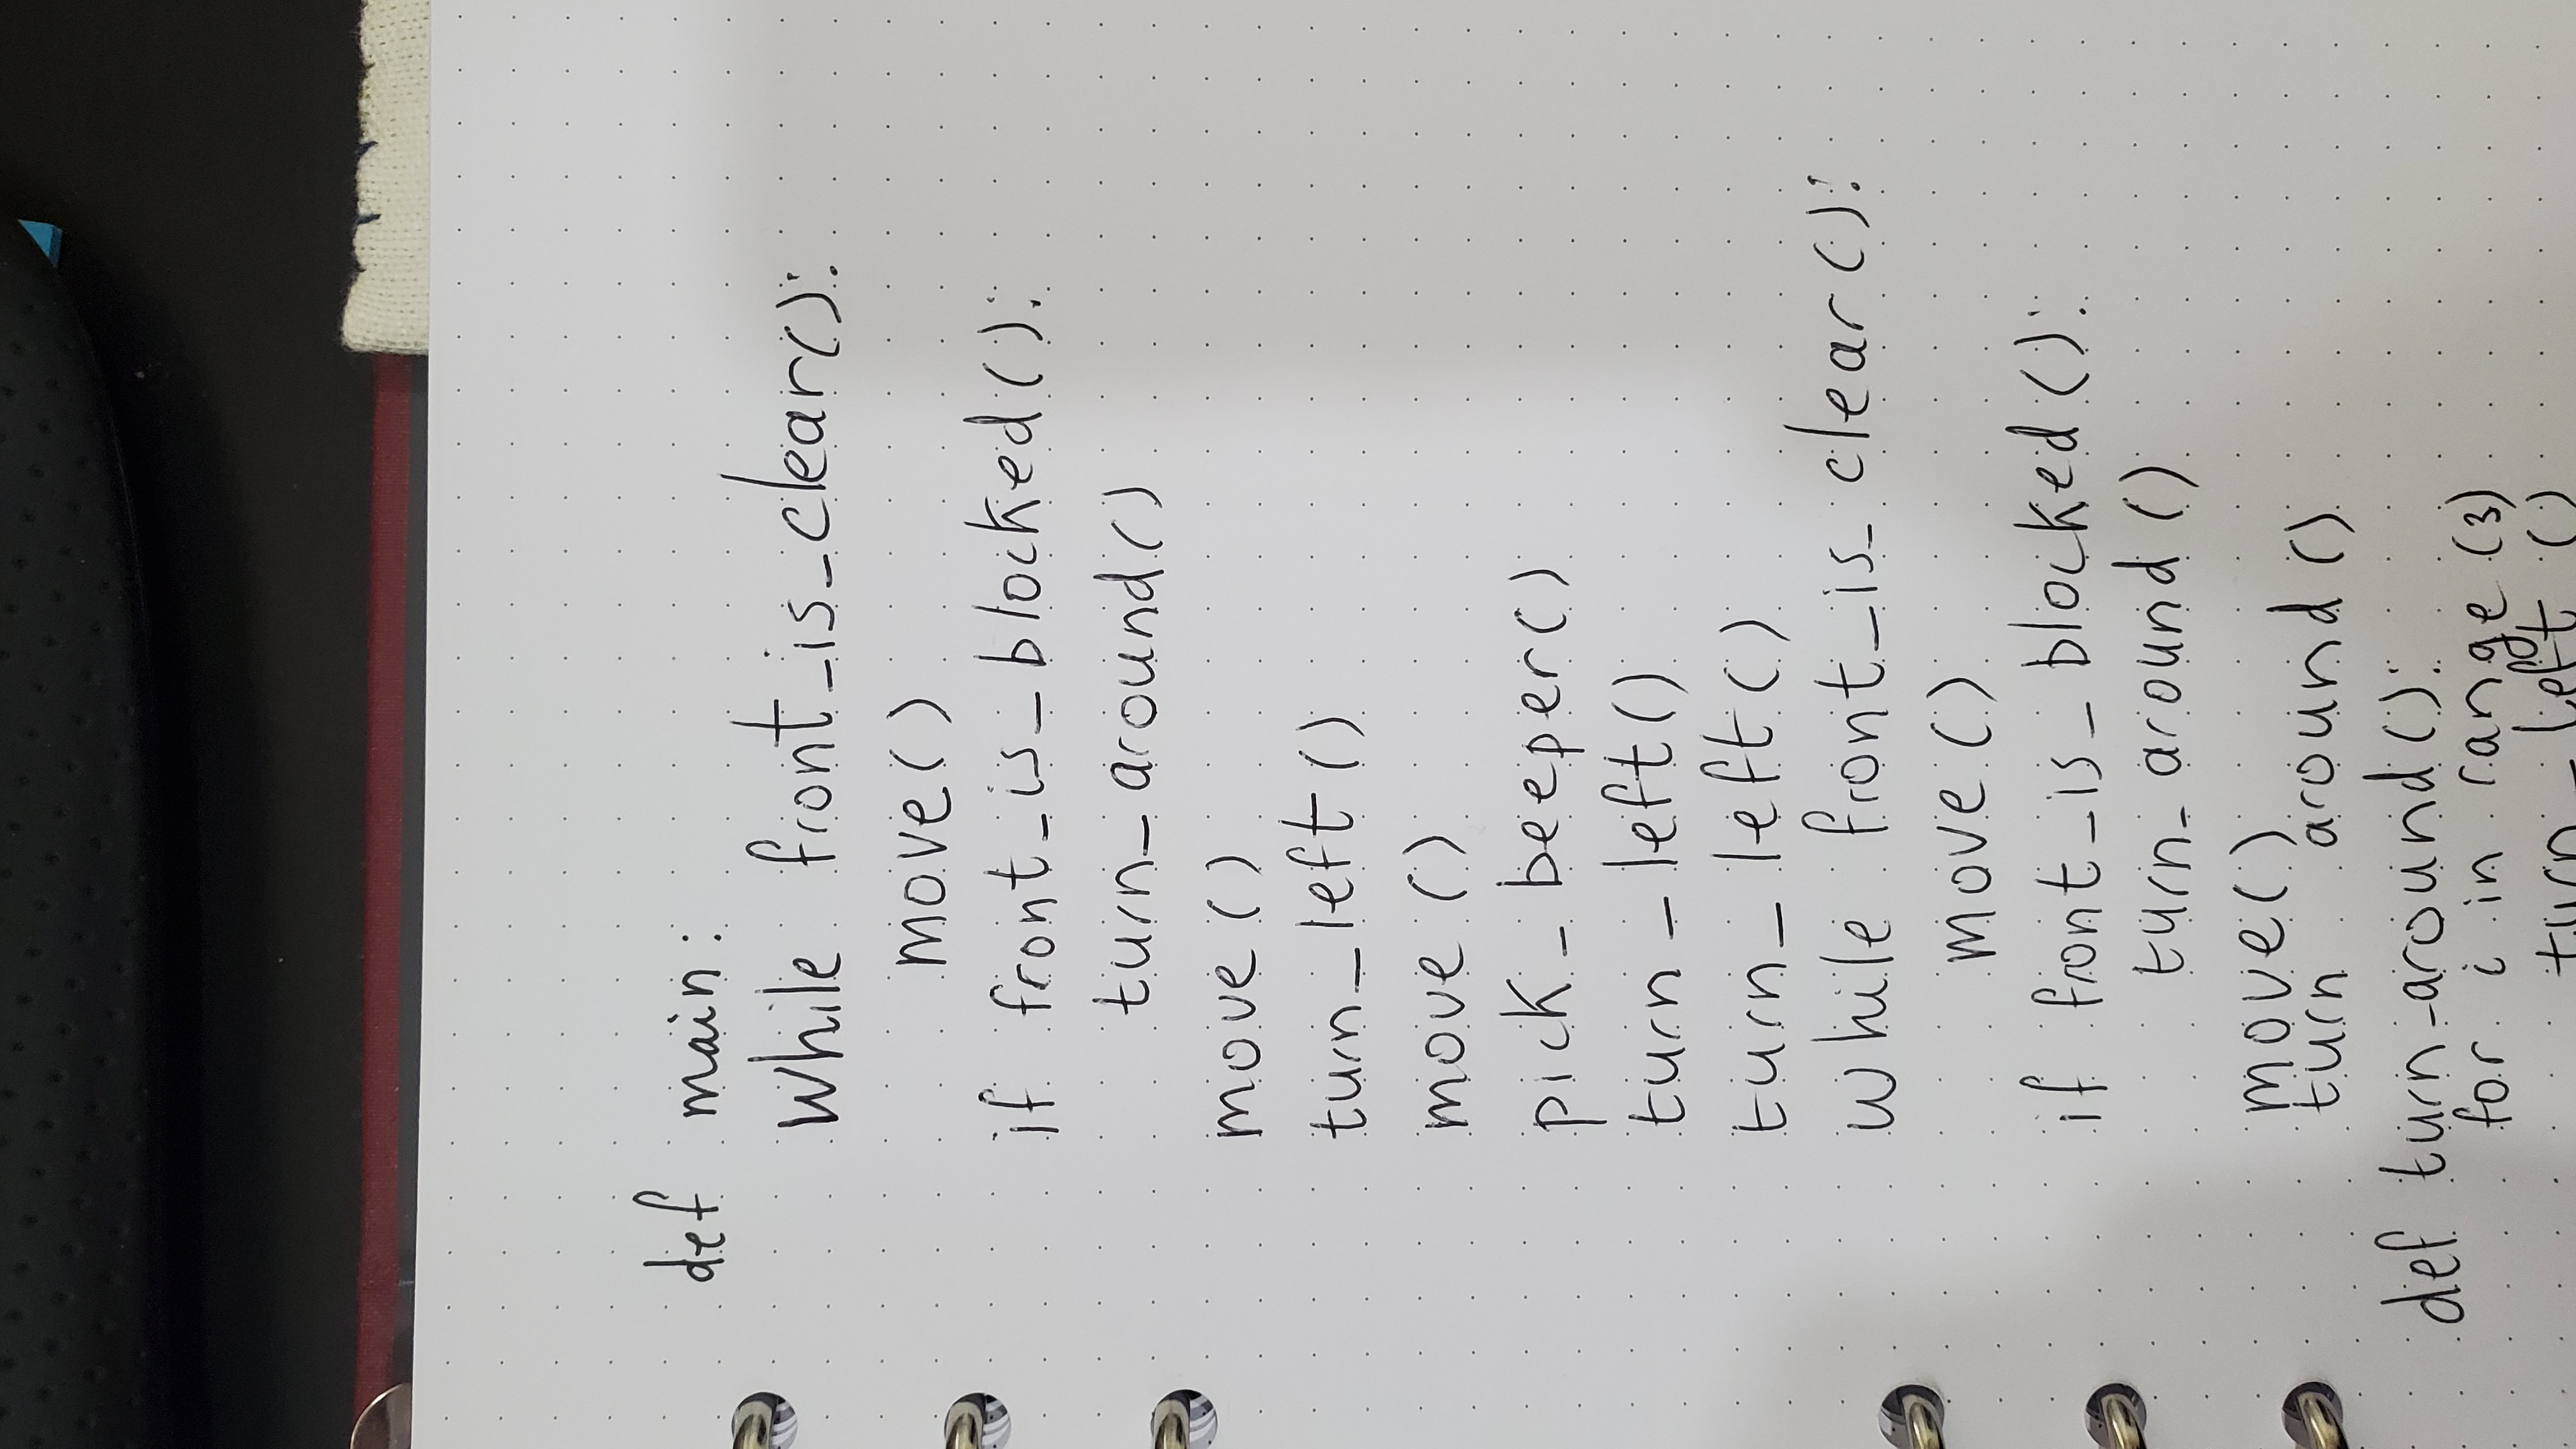 def main:
While front_is_clear():
move()
if front_is_blocked():
turn_around()
move()
turn_left()
move()
pick_beeper()
turn_left()
turn_left()
while front_is_clear():
move()
if front_is_blocked():
turn_around()
move()
turn around()
def turn_around():
for i in range (3)
turn_left ()